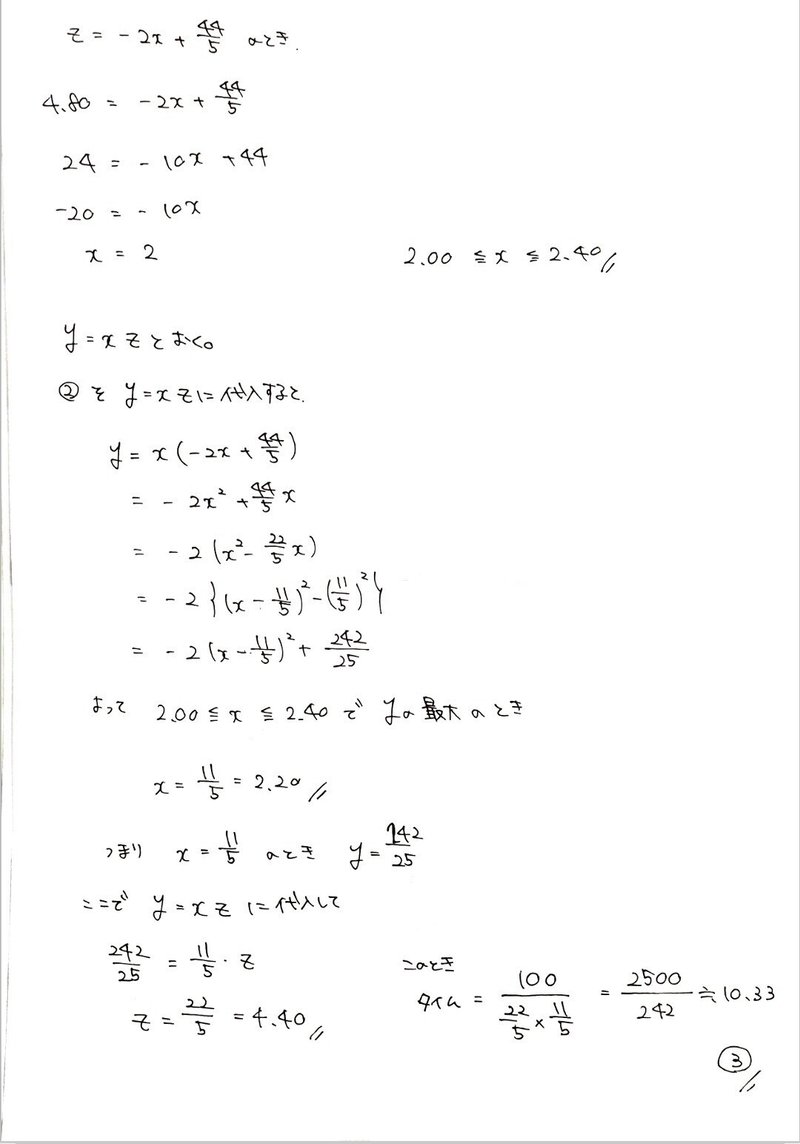 z = -2x + 44/5 のとき.
4.80 = -2x + 44/5
24 = -10x + 44
-20 = -10x
x = 2
2.00 ≦ x ≦ 2.40 //
y = xz とおく。
② を y = xz に代入すると.
y = x(-2x + 44/5)
= -2x² + 44/5 x
= -2(x² - 22/5 x)
= -2{(x - 11/5)² - (11/5)²}
= -2(x - 11/5)² + 242/25
よって 2.00 ≦ x ≦ 2.40 で yの最大のとき
x = 11/5 = 2.20 //
つまり x = 11/5 のとき y = 242/25
ここで y = xz に代入して
242/25 = 11/5 · z
z = 22/5 = 4.40 //
このとき
タイム = 100/(22/5 × 11/5) = 2500/242 ≒ 10.33
③ //